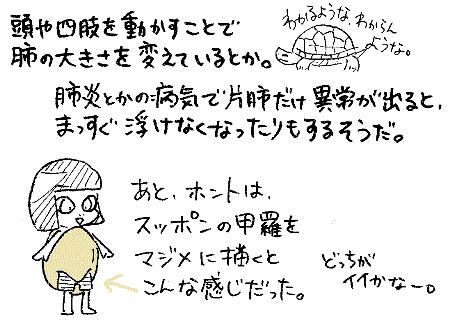 頭や四肢を動かすことで
肺の大きさを変えているとか。
わかるような、わからん
ような。
肺炎とかの病気で片肺だけ異常が出ると、
まっすぐ浮けなくなったりもするそうだ。
あと、ホントは、
スッポンの甲羅を
マジメに描くと
こんな感じだった。
どっちが
イイかなー。